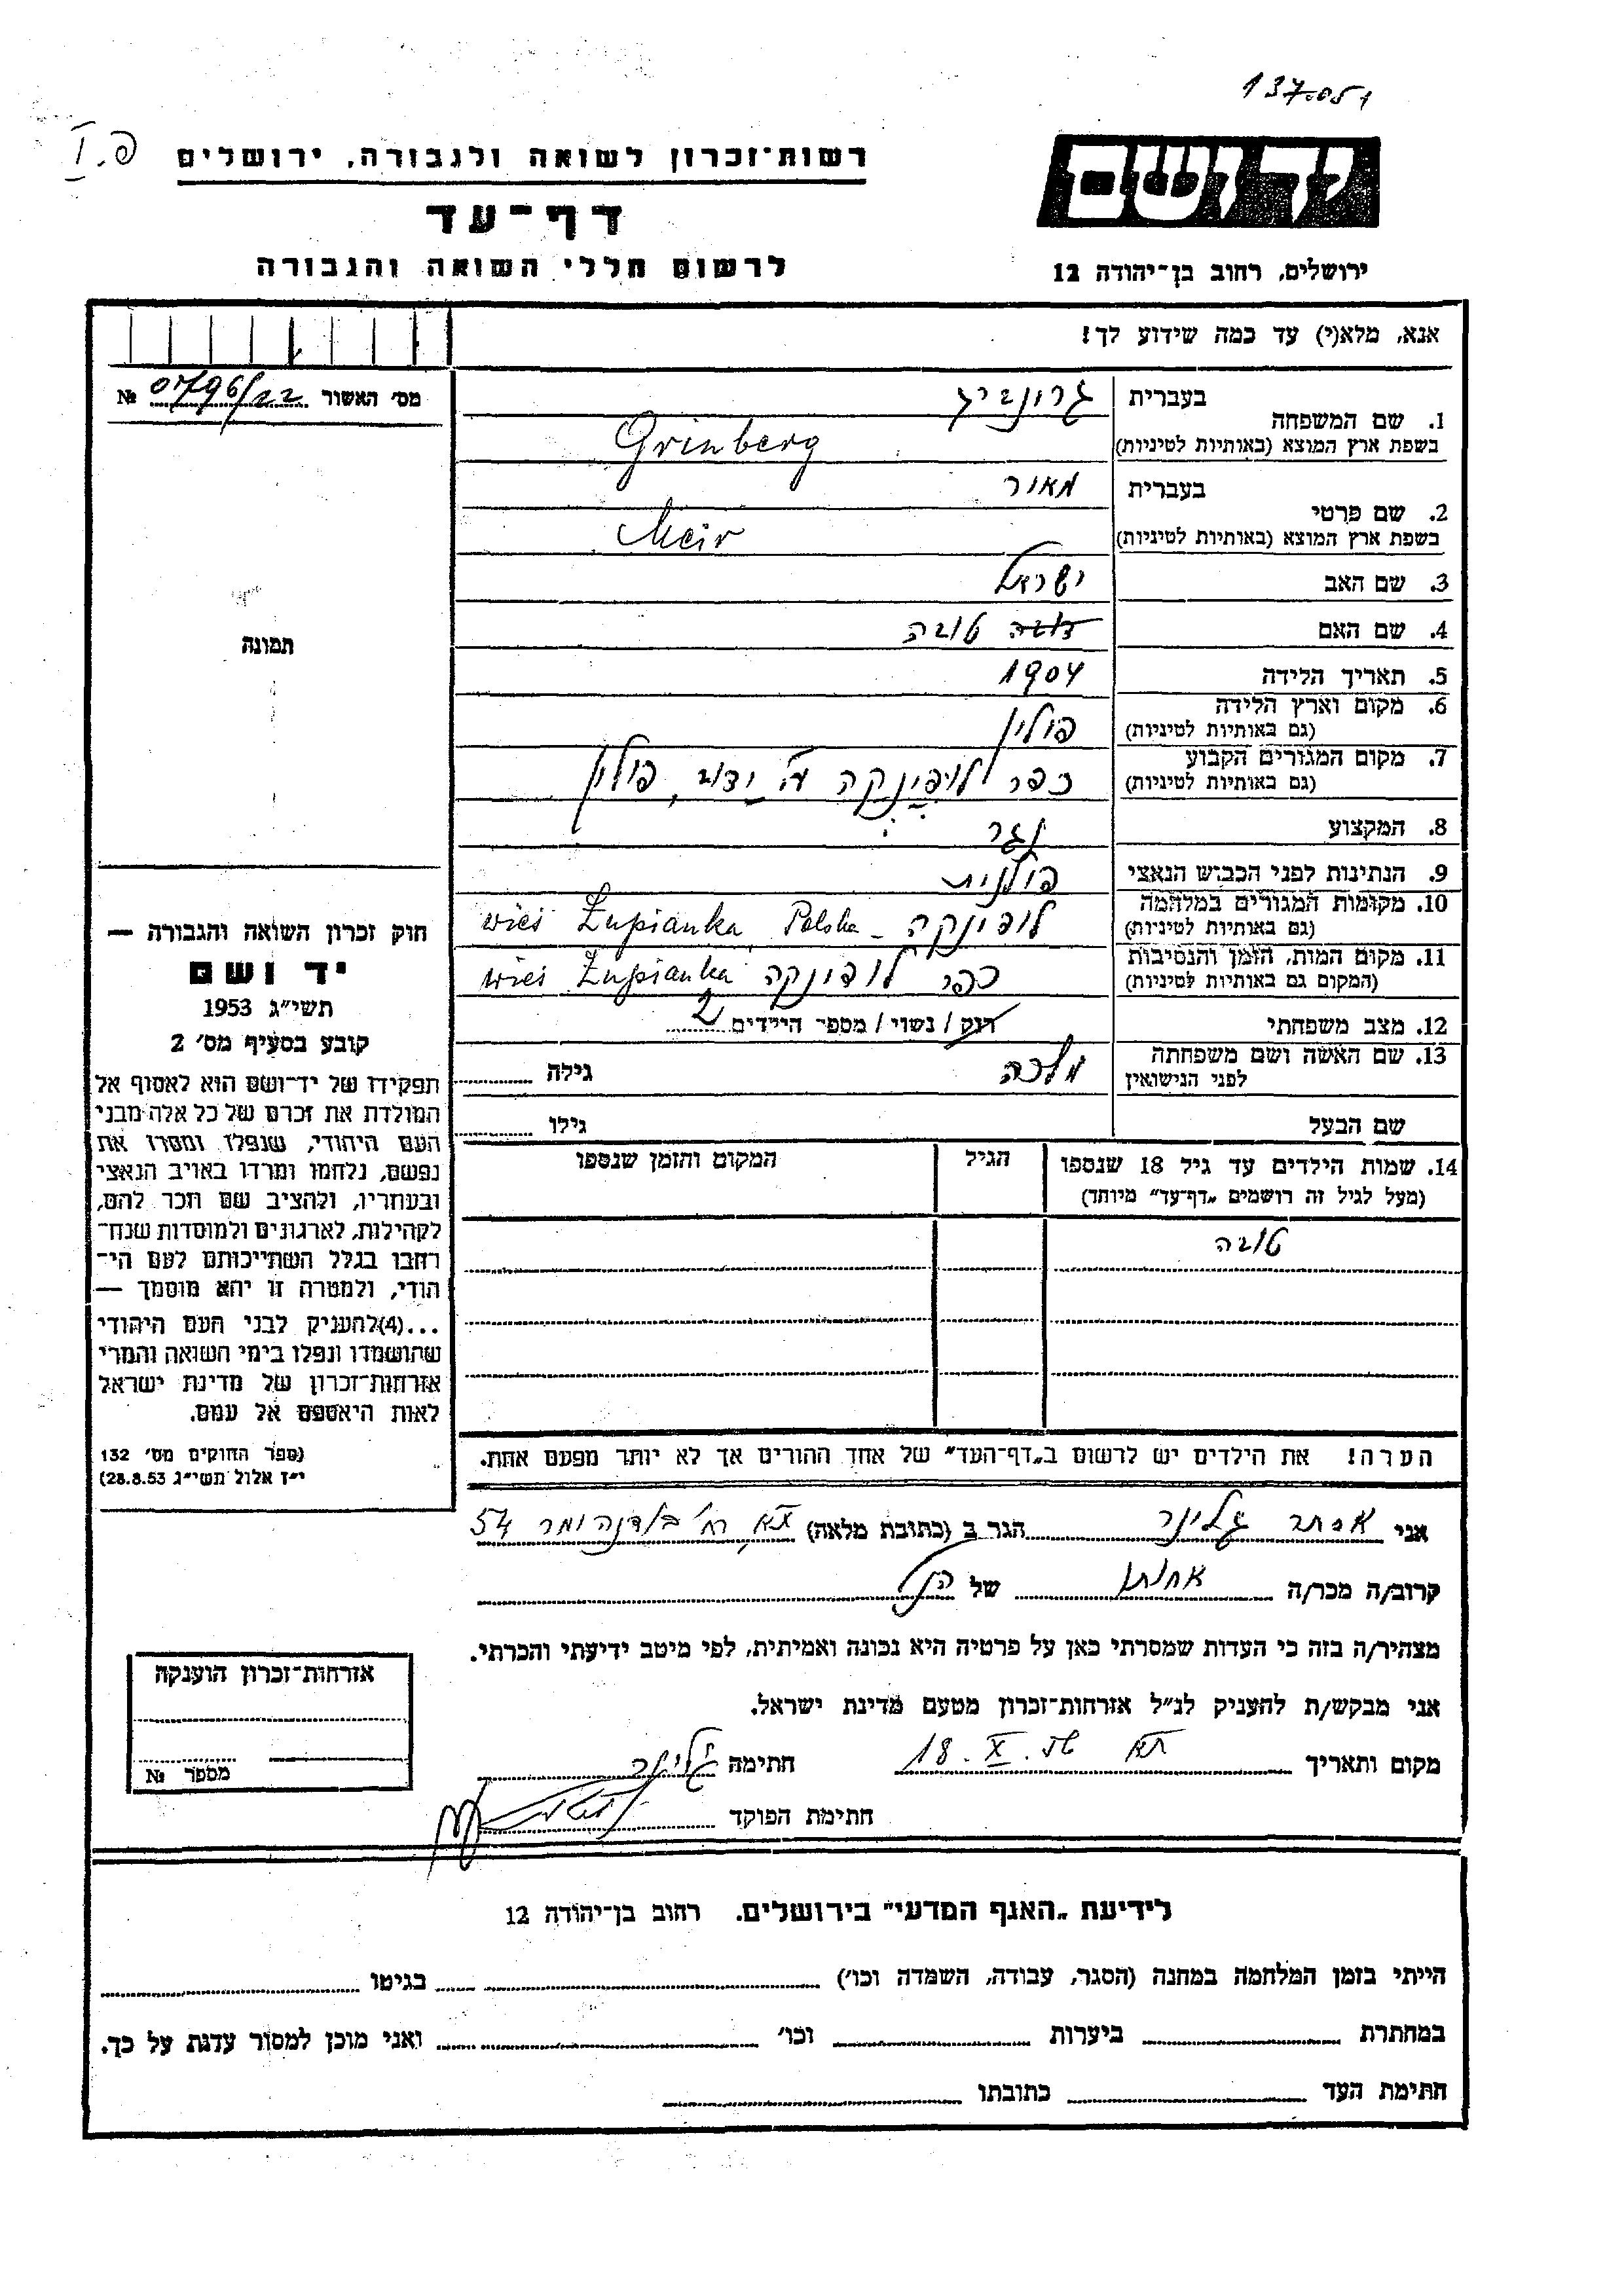 137.051
פ. I
יד ושם
רשות־זכרון לשואה ולגבורה, ירושלים
דף־עד
לרשום חללי השואה והגבורה
ירושלים, רחוב בן־יהודה 12
אנא, מלא(י) עד כמה שידוע לך!
מס׳ האשור 0796/22 №
1. שם המשפחה בעברית גרונברג
בשפת ארץ המוצא (באותיות לטיניות) Grinberg
2. שם פרטי בעברית מאור
בשפת ארץ המוצא (באותיות לטיניות) Meir
3. שם האב ישראל
4. שם האם טובה
5. תאריך הלידה 1904
6. מקום וארץ הלידה פולין
(גם באותיות לטיניות)
7. מקום המגורים הקבוע כפר לופינקה פולין
(גם באותיות לטיניות)
8. המקצוע נגר
9. הנתינות לפני הכבוש הנאצי פולנית
10. מקומות המגורים במלחמה לופינקה - wieś Łupianka, Polska
(גם באותיות לטיניות)
11. מקום המות, הזמן והנסיבות כפר לופינקה wieś Łupianka
(המקום גם באותיות לטיניות)
12. מצב משפחתי רוק / נשוי / מספר הילדים 2
13. שם האשה ושם משפחתה מלכה גילה
לפני הנישואין
שם הבעל גילו
14. שמות הילדים עד גיל 18 שנספו הגיל המקום והזמן שנספו
(מעל לגיל זה רושמים „דף־עד״ מיוחד)
טובה
הערה! את הילדים יש לרשום ב„דף־העד״ של אחד ההורים אך לא יותר מפעם אחת.
תמונה
חוק זכרון השואה והגבורה —
יד ושם
תשי״ג 1953
קובע בסעיף מס׳ 2
תפקידו של יד־ושם הוא לאסוף אל
המולדת את זכרם של כל אלה מבני
העם היהודי, שנפלו ומסרו את
נפשם, נלחמו ומרדו באויב הנאצי
ובעוזריו, ולהציב שם וזכר להם,
לקהילות, לארגונים ולמוסדות שנח־
רבו בגלל השתייכותם לעם הי־
הודי, ולמטרה זו יהא מוסמך —
...(4)להעניק לבני העם היהודי
שהושמדו ונפלו בימי השואה והמרי
אזרחות־זכרון של מדינת ישראל
לאות היאספם אל עמם.
(ספר החוקים מס׳ 132
י״ז אלול תשי״ג 28.8.53)
אני אסתר גלינר הגר ב (כתובת מלאה) ת״א רח׳ 54
קרוב/ה מכר/ה אחותו של הנ״ל
מצהיר/ה בזה כי העדות שמסרתי כאן על פרטיה היא נכונה ואמיתית, לפי מיטב ידיעתי והכרתי.
אני מבקש/ת להעניק לנ״ל אזרחות־זכרון מטעם מדינת ישראל.
מקום ותאריך ת״א 18. X. חתימה גלינר
חתימת הפוקד
אזרחות־זכרון הוענקה
מספר №
לידיעת „האגף המדעי״ בירושלים. רחוב בן־יהודה 12
הייתי בזמן המלחמה במחנה (הסגר, עבודה, השמדה וכו׳) בגיטו
במחתרת ביערות וכו׳ ואני מוכן למסור עדות על כך.
חתימת העד כתובתו